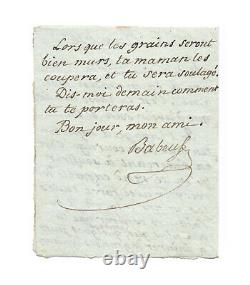 Lors que les grains seront
bien murs, ta maman les
coupera, et tu sera soulagé.
Dis-moi demain comment
tu te porteras.
Bon jour, mon ami.
Babeuf
© ebay